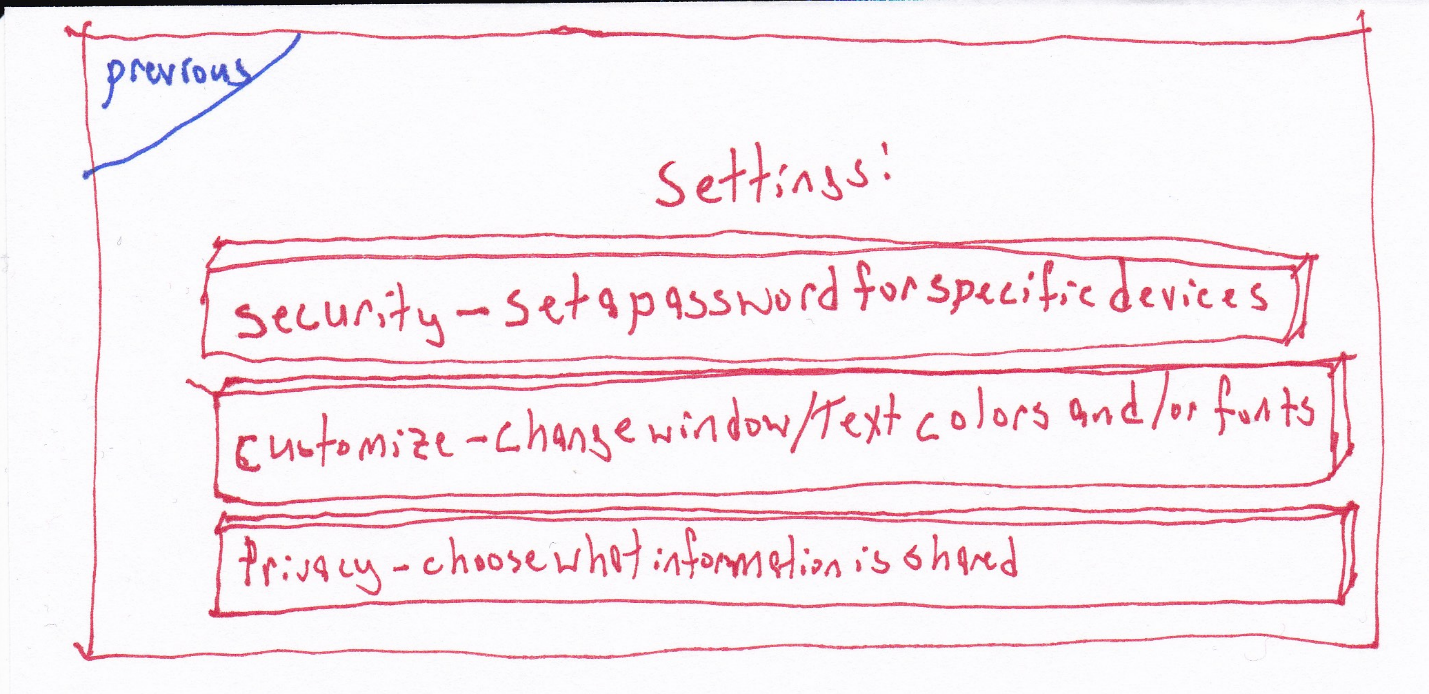 previous
Settings:
Security - set a password for specific devices
Customize - change window/Text colors and/or fonts
Privacy - choose what information is shared